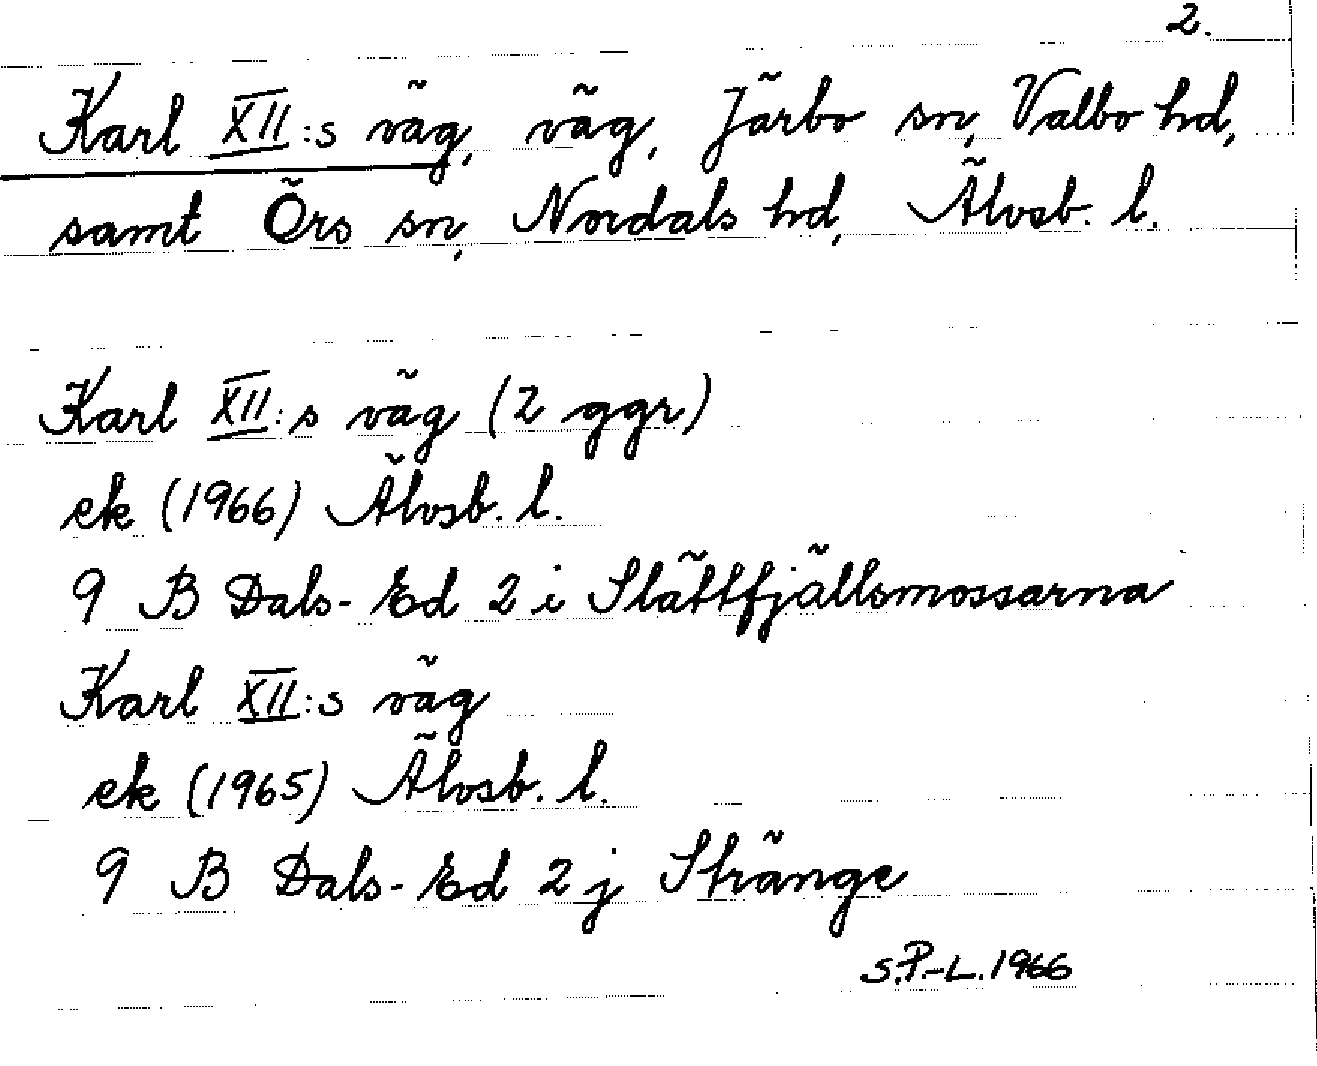 2.
Karl XII:s väg, väg, Järbo sn, Valbo hd,
samt Örs sn, Nordals hd, Älvsb. l.
Karl XII:s väg (2 ggr)
ek (1966) Älvsb. l.
9 B Dals-Ed 2 i Slättfjällsmossarna
Karl XII:s väg
ek (1965) Älvsb. l.
9 B Dals-Ed 2 j Stränge
S.P.-L. 1966